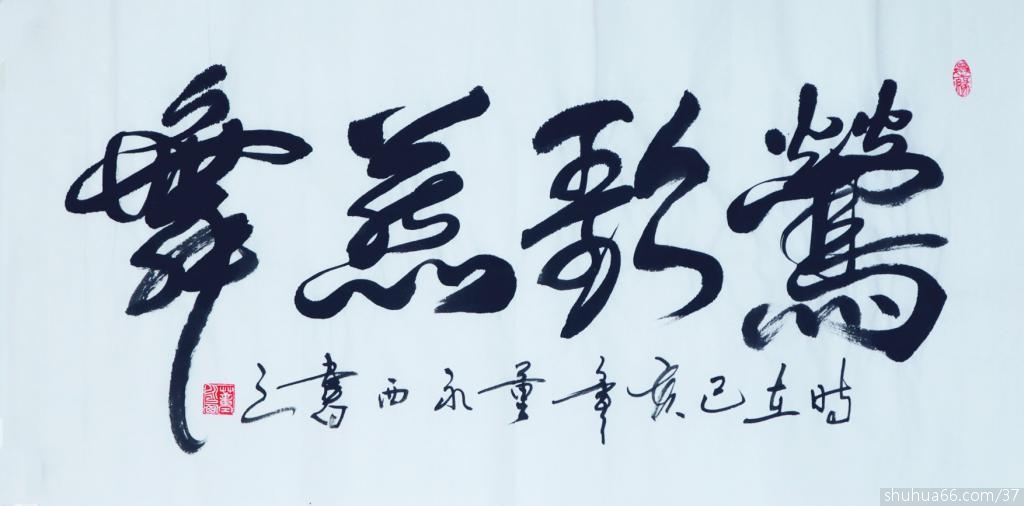 鶯歌燕舞
時在己亥年董永西書之
shuhua66.com/37